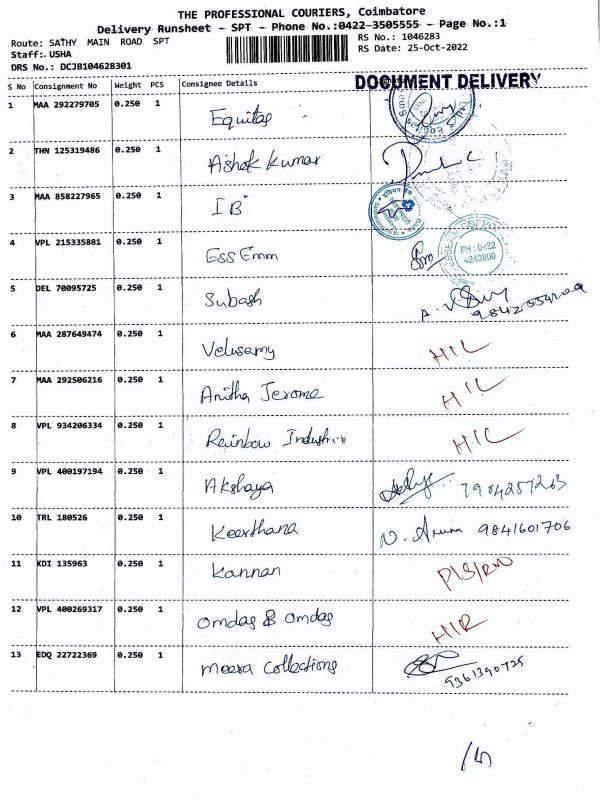 THE PROFESSIONAL COURIERS, Coimbatore
Delivery Runsheet - SPT - Phone No.:0422-3505555 - Page No.:1
Route: SATHY MAIN ROAD SPT
RS No.: 1046283
Staff: USHA
RS Date: 25-Oct-2022
DRS No.: DCJB104628301
DOCUMENT DELIVERY
S No Consignment No Weight PCS Consignee Details
1 MAA 292279705 0.250 1 Equitas
2 THN 125319486 0.250 1 Ashok Kumar
3 MAA 858227965 0.250 1 IB
4 VPL 215335881 0.250 1 Ess Emm
PH : 0422
4243800
5 DEL 70095725 0.250 1 Subash
6 MAA 287649474 0.250 1 Velusamy H/L
7 MAA 292506216 0.250 1 Anitha Jerome H/L
8 VPL 934206334 0.250 1 Rainbow Industries H/L
9 VPL 400197194 0.250 1 Akshaya 7904257263
10 TRL 180526 0.250 1 Keerthana N. Aruna 9841601706
11 KDI 135963 0.250 1 Kannan
12 VPL 400269317 0.250 1 Omdas & Omdas H/R
13 EDQ 22722369 0.250 1 Meera Collections
9361390725